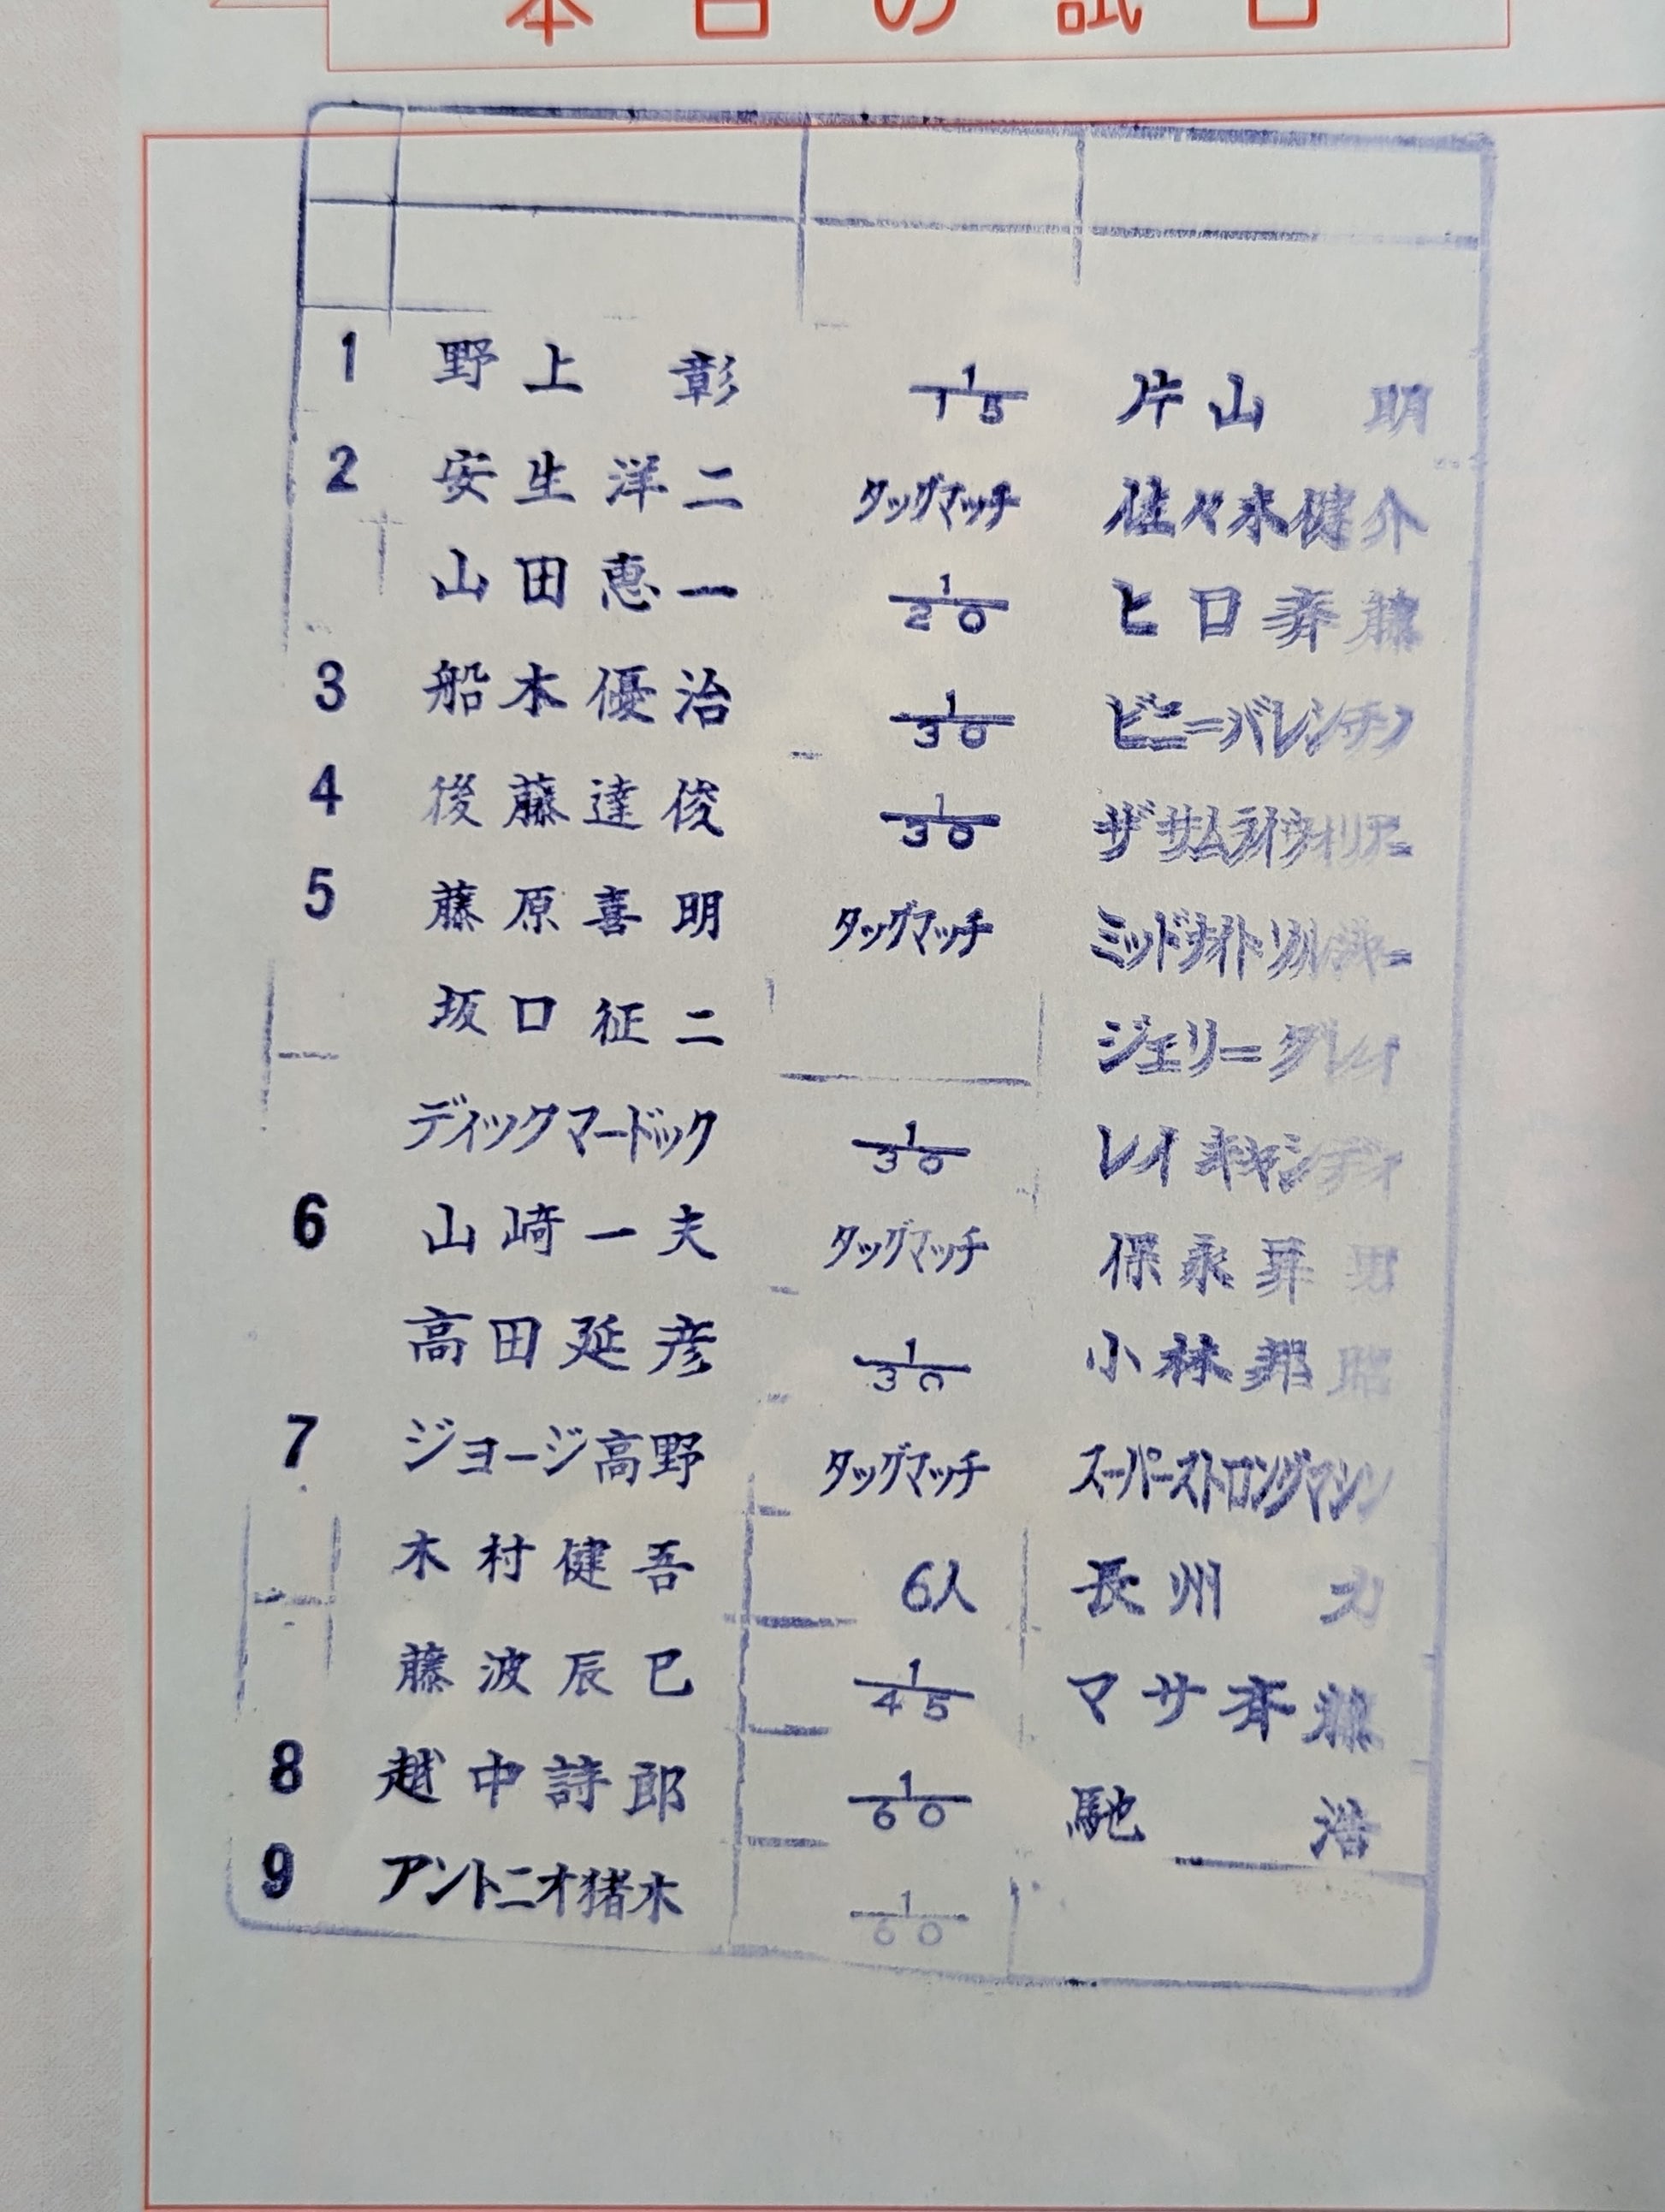 本日の試合
1 野上 彰 1/15 片山 明
2 安生洋二 タッグマッチ 佐々木健介
山田恵一 1/20 ヒロ斉藤
3 船木優治 1/30 ビニーバレンチノ
4 後藤達俊 1/30 ザサムライウォリアー
5 藤原喜明 タッグマッチ ミッドナイトソルジャー
坂口征二 ジェリーグレイ
ディックマードック 1/30 レイキャンディ
6 山崎一夫 タッグマッチ 保永昇男
高田延彦 1/30 小林邦昭
7 ジョージ高野 タッグマッチ スーパーストロングマシン
木村健吾 6人 長州 力
藤波辰巳 1/45 マサ斉藤
8 越中詩郎 1/60 馳 浩
9 アントニオ猪木 1/60